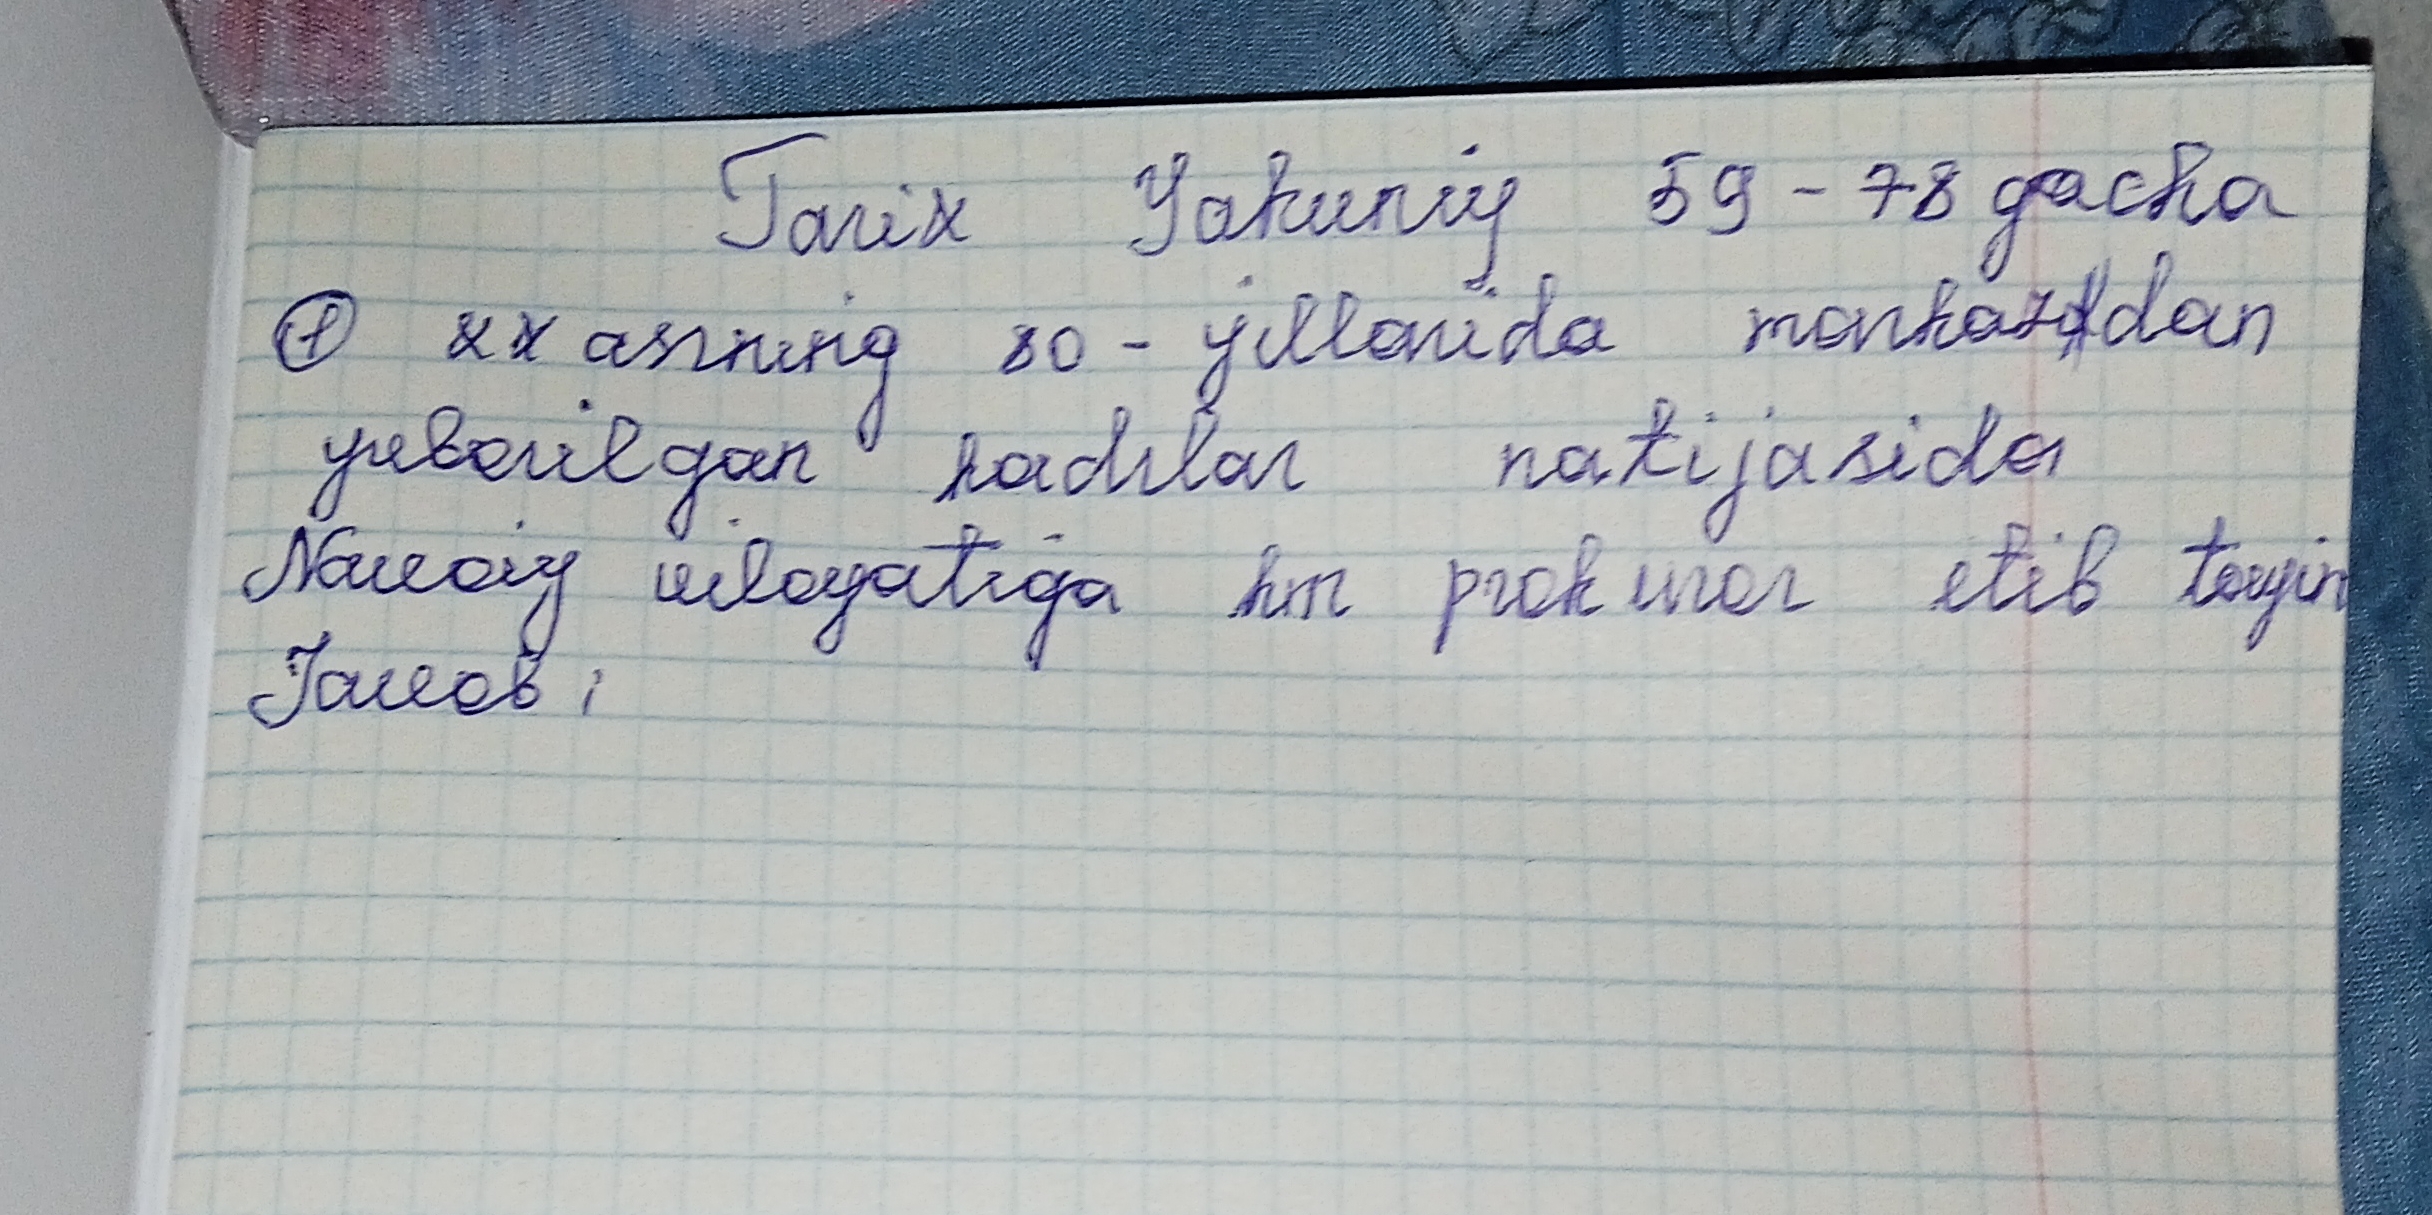 Tarix Yakuniy 59-78 gacha
① XX asrning 80-yillarida markazdan
yuborilgan kadrlar natijasida
Navoiy viloyatiga kim prokuror etib tayin
Javob: